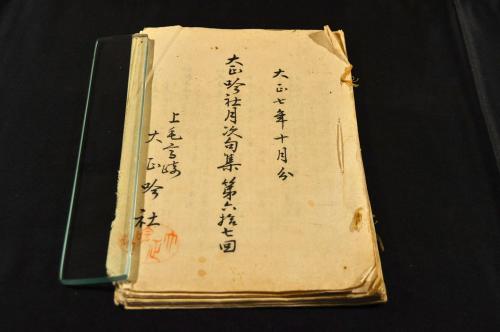 大正七年十月分
大正吟社月次句集 第六拾七回
上毛高崎
大正吟社